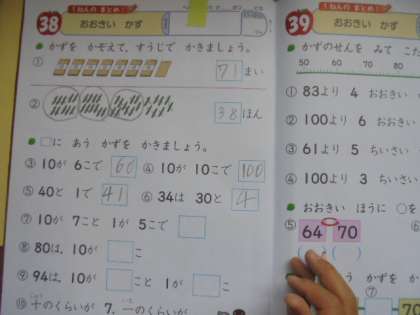 1ねんの まとめ!
38 おおきい かず
かずを かぞえて, すうじで かきましょう。
① 71 まい
② 38 ほん
□に あう かずを かきましょう。
③ 10が 6こで 60 ④ 10が 10こで 100
⑤ 40と 1で 41 ⑥ 34は 30と 4
⑦ 10が 7こと 1が 5こで
⑧ 80は, 10が こ
⑨ 94は, 10が こと 1が こ
⑩ 十のくらいが 7, 一のくらいが
1ねんの まとめ!
39 おおきい かず
かずのせんを みて こた
50 60 70 80
① 83より 4 おおきい
② 100より 6 おおき
③ 61より 5 ちいさい
④ 100より 3 ちいさい
おおきい ほうに ○を
⑤ 64 70 ⑥
かずを か
⑦